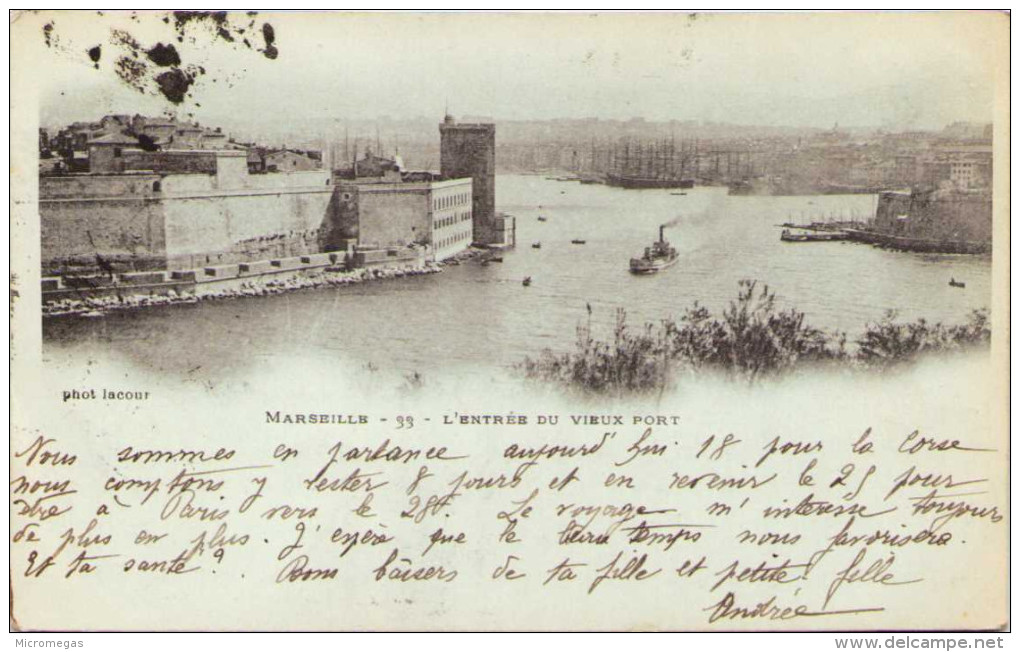 phot lacour
MARSEILLE - 33 - L'ENTRÉE DU VIEUX PORT
Nous sommes en partance aujourd'hui 18 pour la Corse
nous comptons y rester 8 jours et en revenir le 25 pour
être à Paris vers le 28. Le voyage m'intéresse toujours
de plus en plus. J'espère que le beau temps nous favorisera.
Et ta santé? Bons baisers de ta fille et petite fille
Andrée
Micromegas
www.delcampe.net